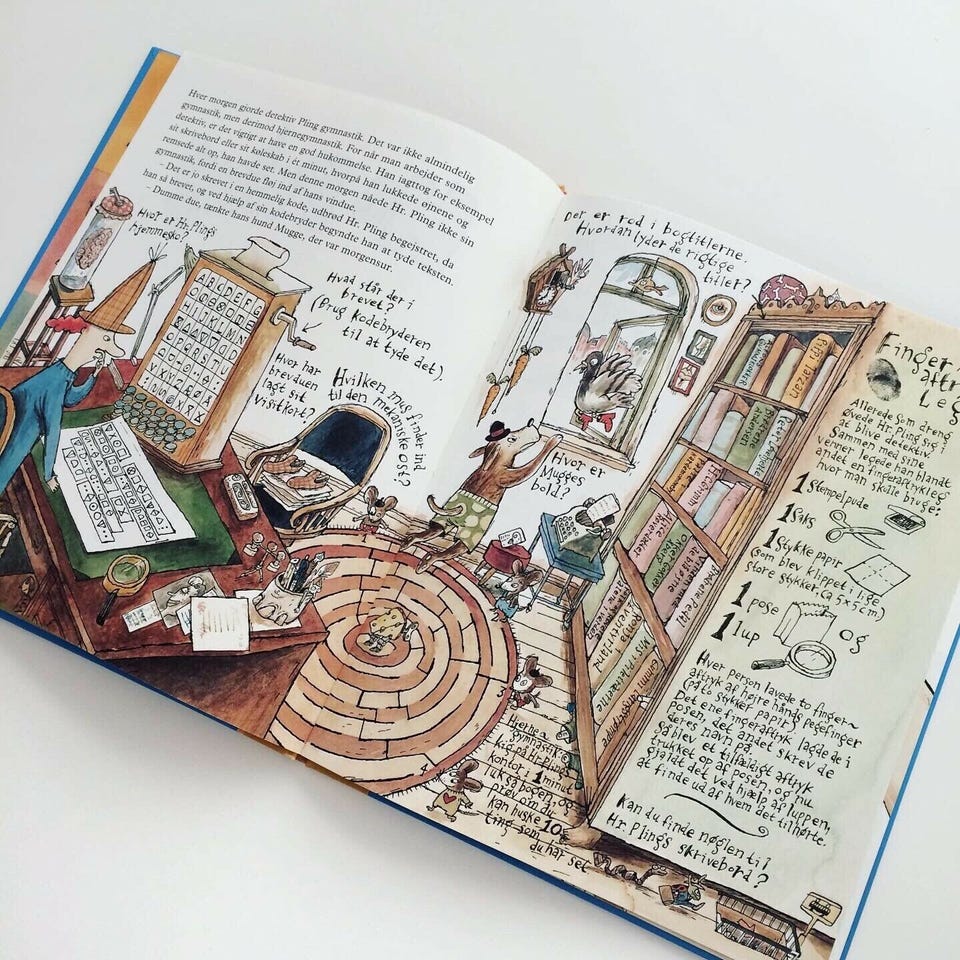 Hver morgen gjorde detektiv Pling gymnastik. Det var ikke almindelig
gymnastik, men derimod hjernegymnastik. For når man arbejder som
detektiv, er det vigtigt at have en god hukommelse. Han iagttog for eksempel
sit skrivebord eller sit køleskab i ét minut, hvorpå han lukkede øjnene og
remsede alt op, han havde set. Men denne morgen nåede Hr. Pling ikke sin
gymnastik, fordi en brevdue fløj ind af hans vindue.
– Det er jo skrevet i en hemmelig kode, udbrød Hr. Pling begejstret, da
han så brevet, og ved hjælp af sin kodebryder begyndte han at tyde teksten.
– Dumme due, tænkte hans hund Mugge, der var morgensur.
Hvor er Hr. Plings
hjemmesko?
ABCDEFG
Hvad står der i
brevet?
(Brug kodebryderen
til at tyde det).
Hvor har
brevduen
lagt sit
visitkort?
Hvilken mus finder ind
til den mekaniske ost?
Der er rod i bogtitlerne.
Hvordan lyder de rigtige
titler?
Hvor er
Mugges
bold?
Pippi Tarzan
Hjerne-
gymnastik
kig på Hr. Plings
kontor i 1 minut
luk så bogen, og
prøv om du
kan huske 10
ting som
du har set
Finger-
aftryks
Leg
Allerede som dreng
øvede Hr. Pling sig i
at blive detektiv.
Sammen med sine
venner legede han blandt
andet en fingeraftryksleg
hvor man skulle bruge:
1 stempelpude
1 saks
1 stykke papir
(som blev klippet i lige
store stykker, ca 5x5 cm)
1 pose
og
1 lup
Hver person lavede to finger-
aftryk af højre hånds pegefinger
(på to stykker papir).
Det ene fingeraftryk lagde de i
posen, det andet skrev de
deres navn på.
Så blev et tilfældigt aftryk
trukket op af posen, og nu
gjaldt det ved hjælp af luppen,
at finde ud af hvem det tilhørte.
Kan du finde nøglen til
Hr. Plings skrivebord?